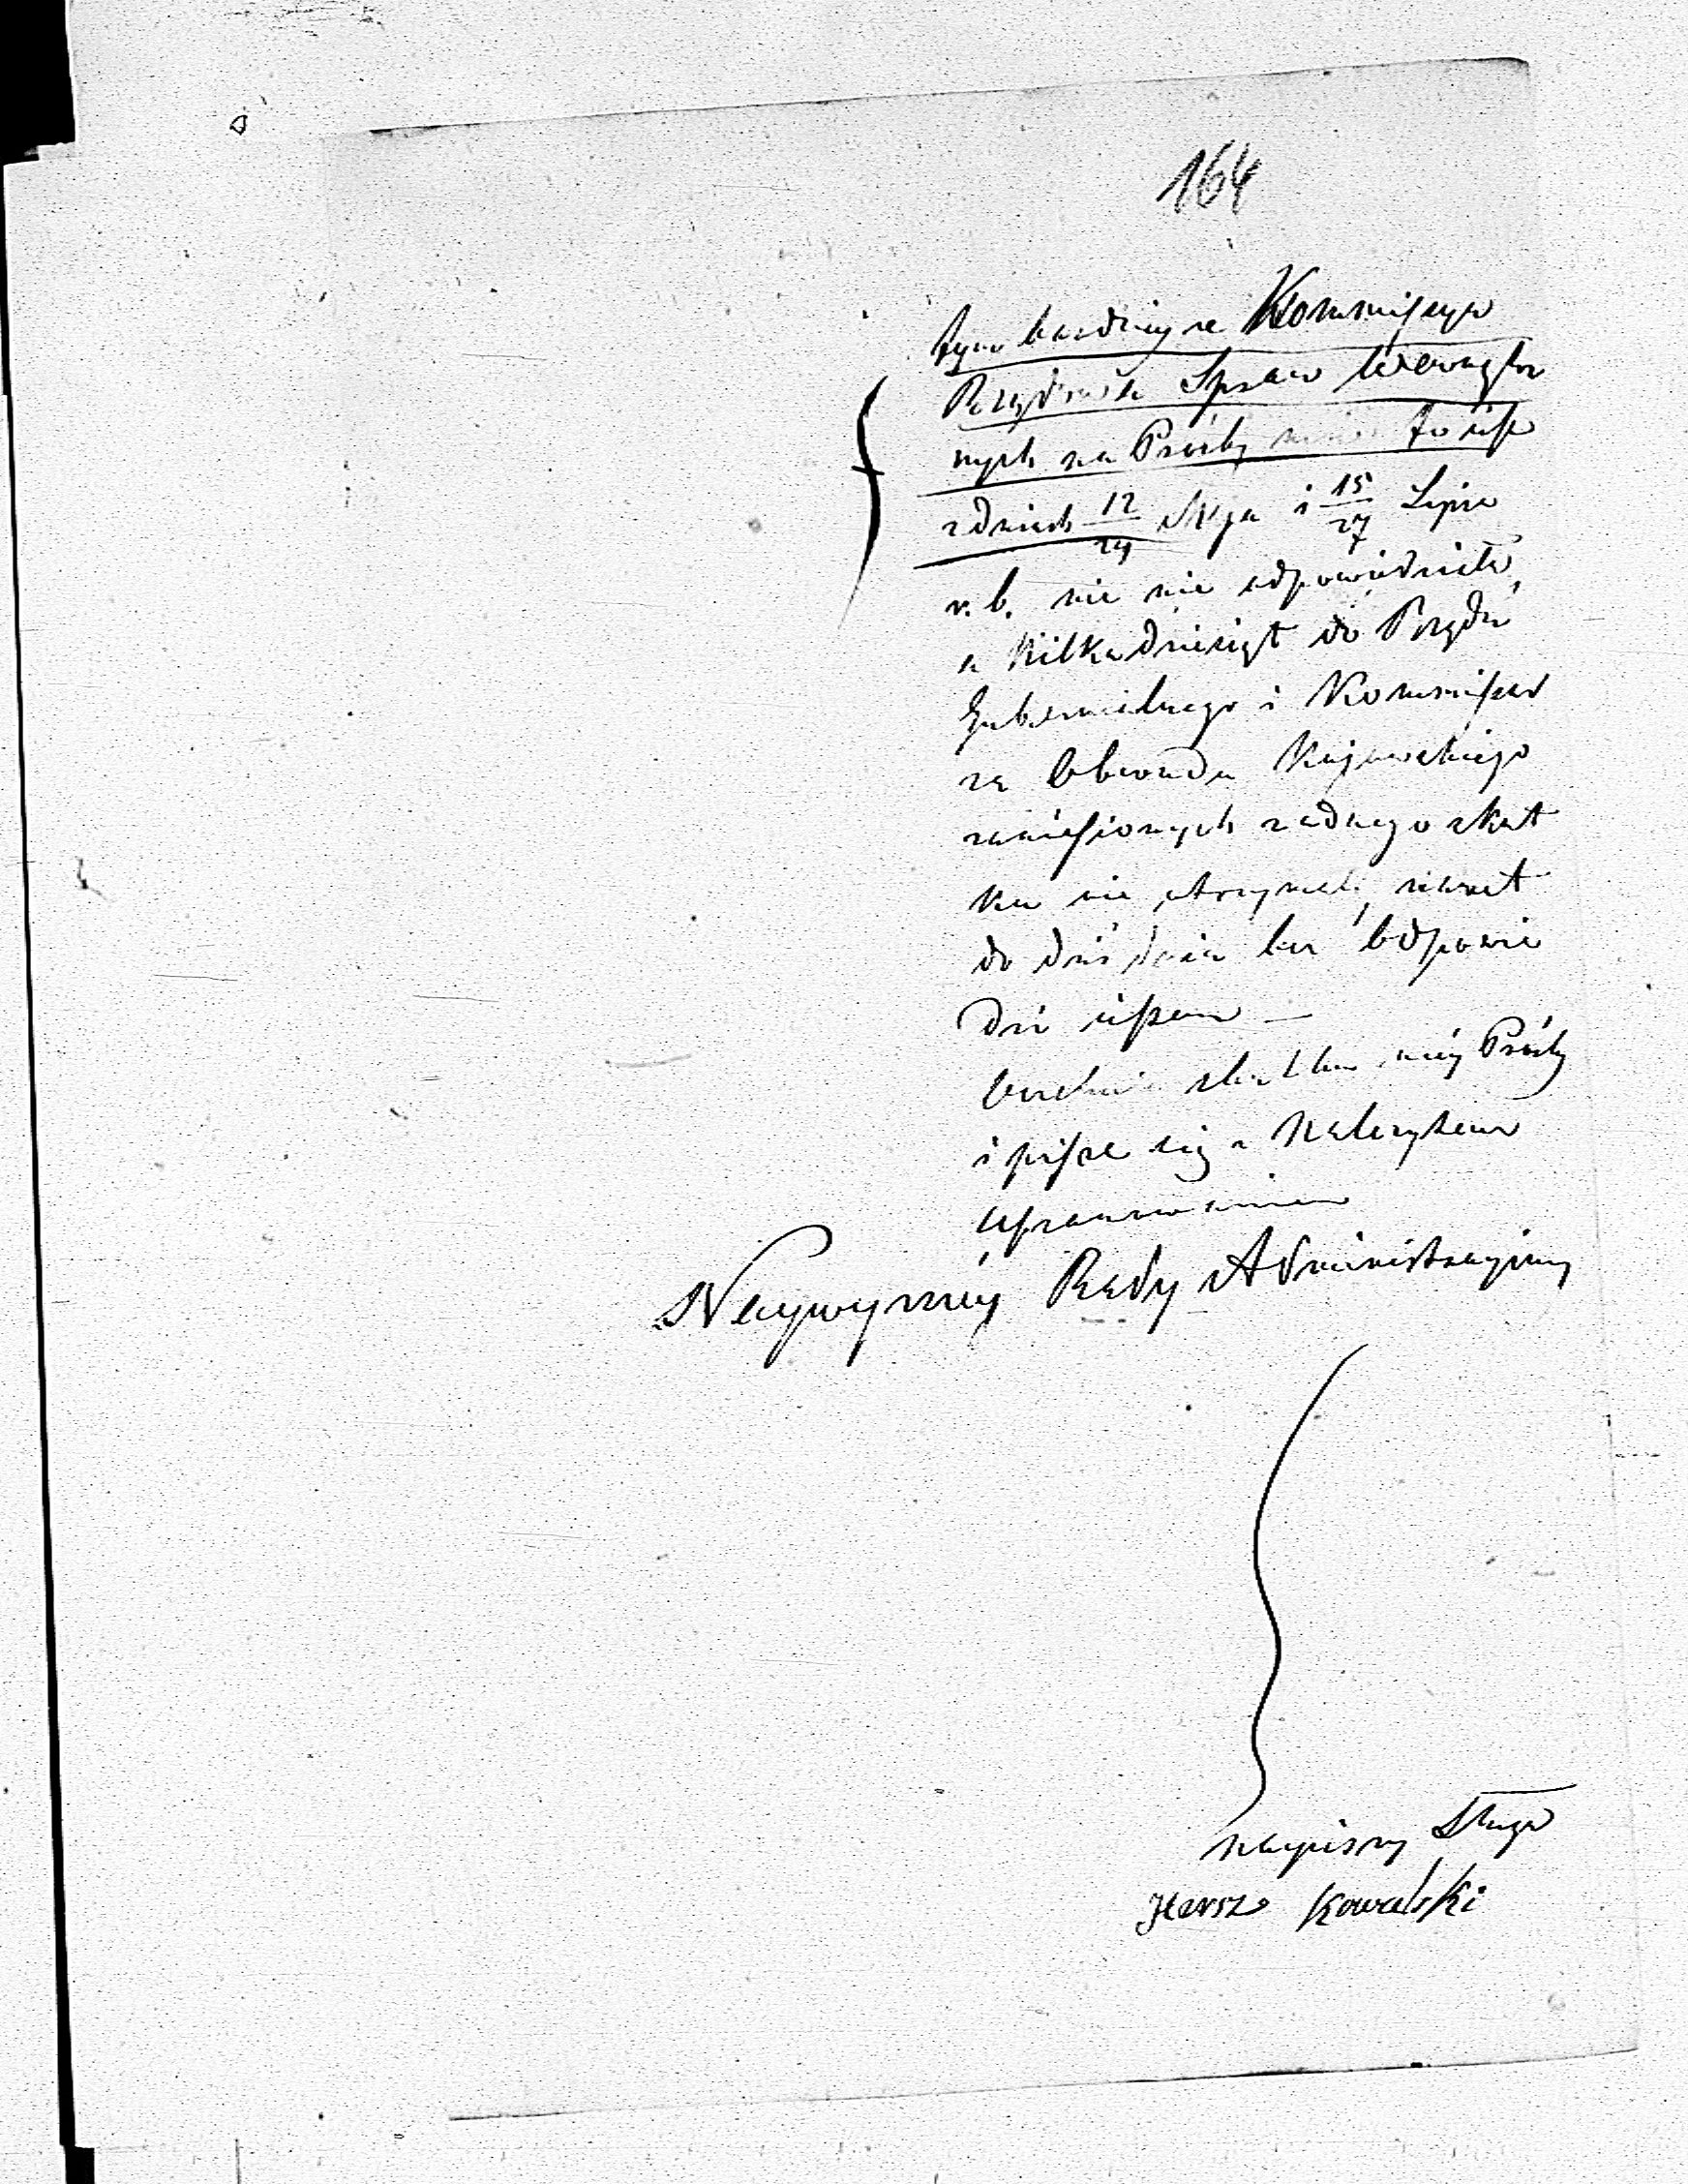 164
tym bardziej ze Kommisya
Rządowa Spraw Wewnętrz
nych na Prośby to iest
z dnich 12/24 Maja i 15/27 Lipca
r. b. nic nie odpowiedziała,
a Kilkadziesiąt do Rządu
Gubernialnego i Kommisarz
za Obwodu Kujawskiego
zaniesionych zadnego skut
ku nie otrzymali, nawet
do dziś dnia bez Odpowie
dzi
skutku méy Prośby
i pisze się z Należytem
Uszanowaniem
Naywyzszéy Rady Administracyiney
Nayniszszy Sługa
Hersz Kowalski